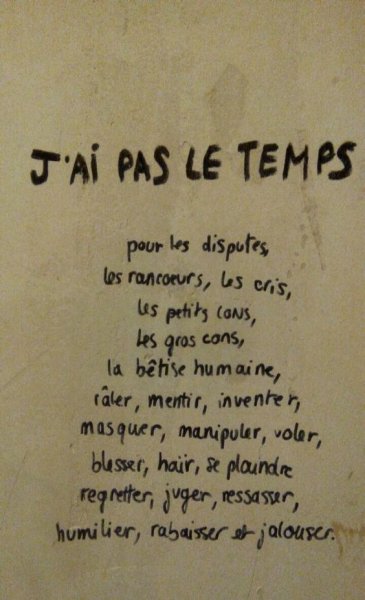 J'Ai PAS LE TEMPS
pour les disputes,
les rancoeurs, les cris,
les petits cons,
les gros cons,
la bêtise humaine,
râler, mentir, inventer,
masquer, manipuler, voler,
blesser, haïr, se plaindre
regretter, juger, ressasser,
humilier, rabaisser et jalouser.